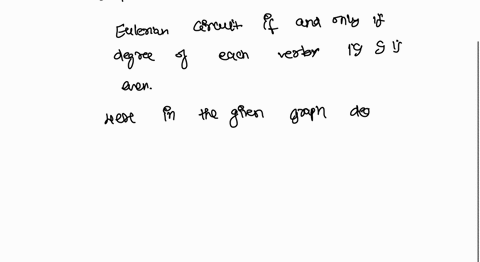 Eulerian circuit if and only if
degree of each vertex is G is
even.
Here in the given graph de